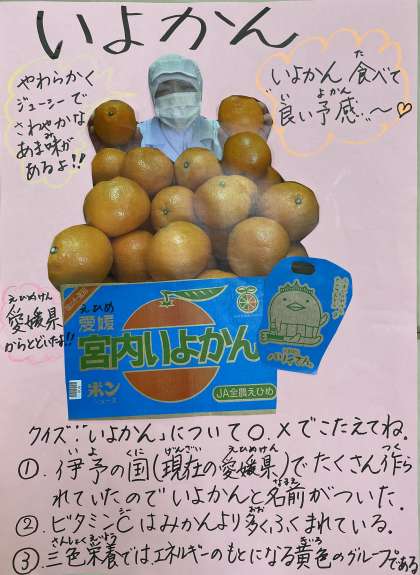 いよかん
やわらかく
ジューシーで
さわやかな
あま味が
あるよ!!
"いよかん食べて
良い予感‥～♡
愛媛県
からとどいたよ!!
愛媛
宮内いよかん
ポン
ジュース
JA全農えひめ
クイズ:「いよかん」について○、×でこたえてね。
①.伊予の国(現在の愛媛県)でたくさん作ら
れていたのでいよかんと名前がついた.
②.ビタミンCはみかんより多くふくまれている.
③三色栄養ではエネルギーのもとになる黄色のグループである